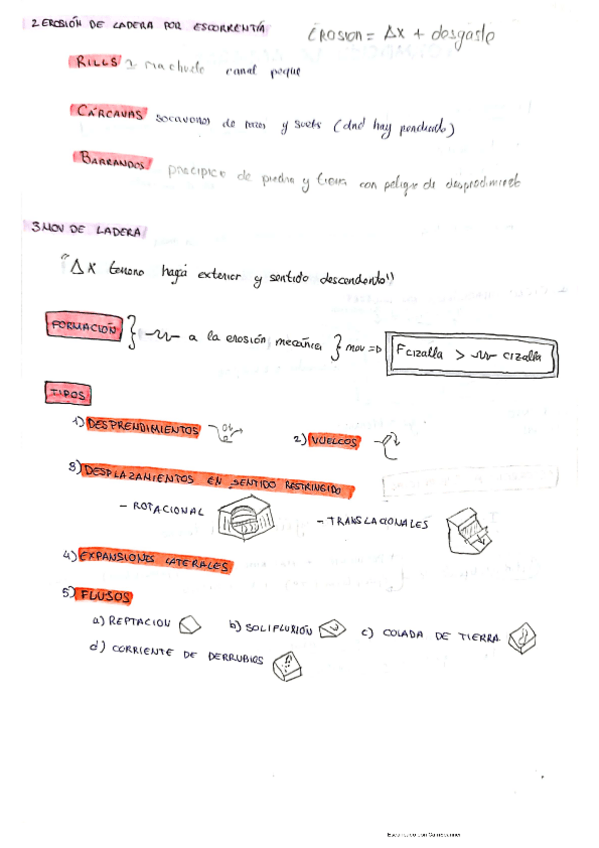 2. EROSIÓN DE LADERA POR ESCORRENTÍA
EROSION = ΔX + desgaste
RILLS canal peque
CÁRCAVAS socavones de rocas y suelo (dnd hay pendiente)
BARRANDOS precipicio de piedra y tierra con peligro de desprendimiento
3. MOV DE LADERA
"ΔX terreno hacia exterior y sentido descendente"
FORMACIÓN a la erosión mecánica } mov => F cizalla > cizalla
TIPOS
1) DESPRENDIMIENTOS
2) VUELCOS
3) DESPLAZAMIENTOS EN SENTIDO RESTRINGIDO
- ROTACIONAL
- TRANSLACIONALES
4) EXPANSIONES LATERALES
5) FLUJOS
a) REPTACION b) SOLIFLUXIÓN c) COLADA DE TIERRA
d) CORRIENTE DE DERRUBIOS
Escaneado con CamScanner